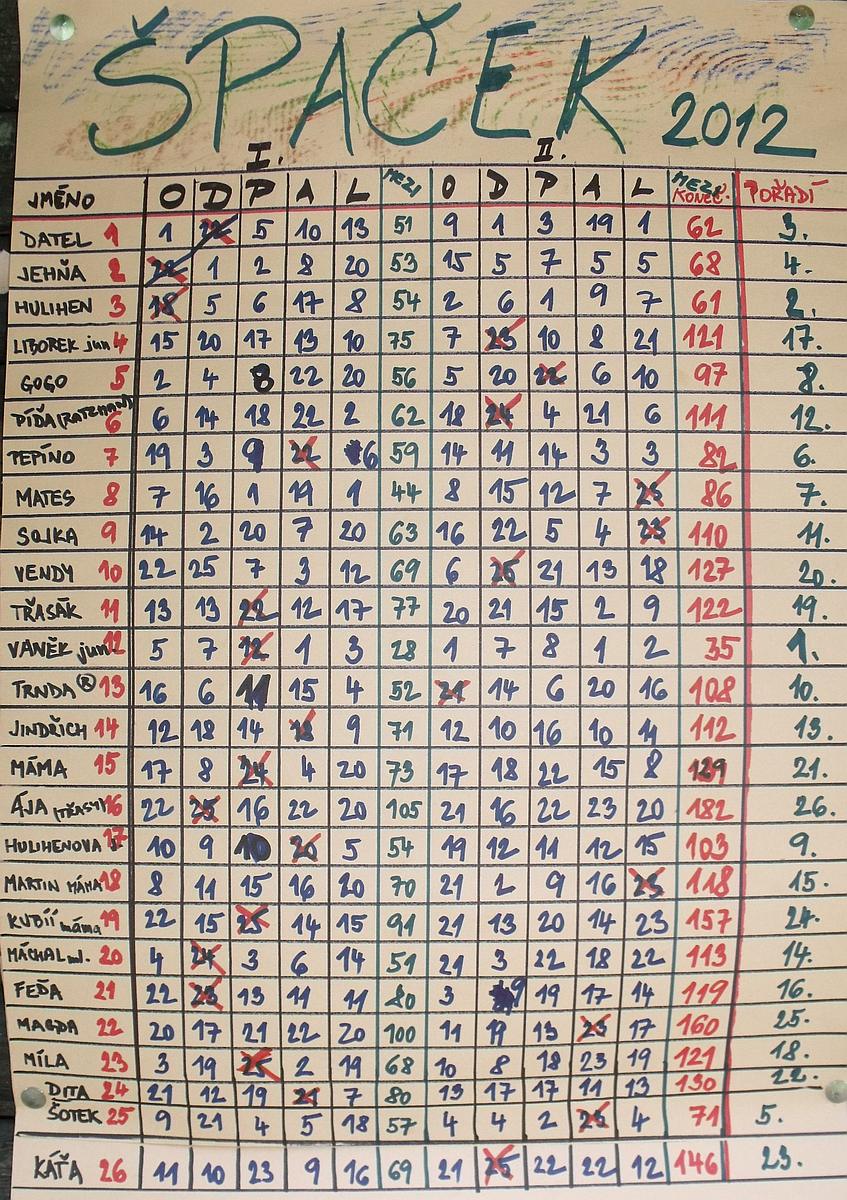 ŠPAČEK 2012
I. II.
JMÉNO O D P A L MEZI O D P A L MEZI KONEČ. POŘADÍ
DATEL 1 1 22 5 10 13 51 9 1 3 19 1 62 3.
JEHŇA 2 22 1 2 8 20 53 15 5 7 5 5 68 4.
HULIHEN 3 18 5 6 17 8 54 2 6 1 9 7 61 2.
LIBOREK jun 4 15 20 17 13 10 75 7 23 10 8 21 121 17.
GOGO 5 2 4 8 22 20 56 5 20 22 6 10 97 8.
PÍĎA 6 6 14 18 22 2 62 18 24 4 21 6 111 12.
PEPÍNO 7 19 3 9 22 6 59 14 11 14 3 3 82 6.
MATES 8 7 16 1 19 1 44 8 15 12 7 25 86 7.
SOJKA 9 14 2 20 7 20 63 16 22 5 4 23 110 11.
VENDY 10 22 25 7 3 12 69 6 25 21 13 18 127 20.
TŘASÁK 11 13 13 22 12 17 77 20 21 15 2 9 122 19.
VANĚK jun 12 5 7 12 1 3 28 1 7 8 1 2 35 1.
TRNDA ® 13 16 6 11 15 4 52 21 14 6 20 16 108 10.
JINDŘICH 14 12 18 14 18 9 71 12 10 16 10 11 112 13.
MÁMA 15 17 8 24 4 20 73 17 18 22 15 8 129 21.
ÁJA (TŘASY) 16 22 25 16 22 20 105 21 16 22 23 20 182 26.
HULIHENOVA 17 10 9 10 20 5 54 19 12 11 12 15 103 9.
MARTIN MÁMA 18 8 11 15 16 20 70 21 2 9 16 25 118 15.
KUBÍÍ máma 19 22 15 25 14 15 91 21 13 20 14 23 157 24.
MÁCHAL ml. 20 4 24 3 6 14 51 21 3 22 18 22 113 14.
FEĎA 21 22 23 13 11 11 80 3 9 19 17 14 119 16.
MAGDA 22 20 17 21 22 20 100 11 19 13 25 17 160 25.
MÍLA 23 3 19 25 2 19 68 10 8 18 23 19 121 18.
DITA 24 21 12 19 21 7 80 13 17 17 11 13 130 22.
ŠOTEK 25 9 21 4 5 18 57 4 4 2 25 4 71 5.
KÁŤA 26 11 10 23 9 16 69 21 25 22 22 12 146 23.